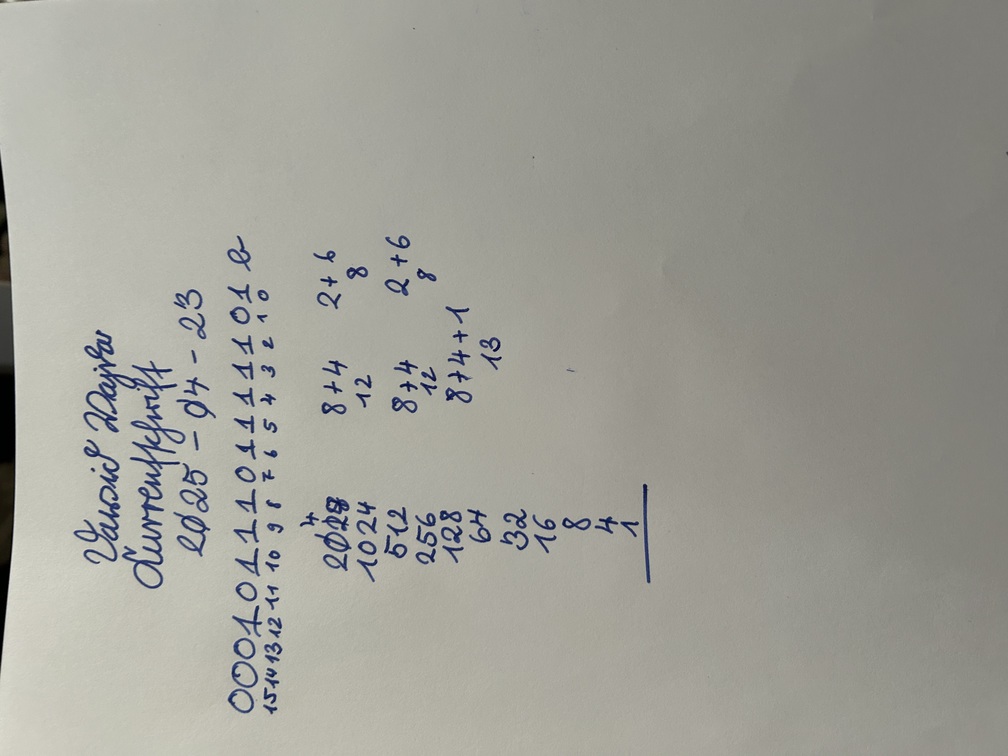 Currentſchrift
2025-04-23
0001011101111101 b
15 14 13 12 11 10 9 8 7 6 5 4 3 2 1 0
4
8+4 2+6
1024 12 8
512 8+4 2+6
256 12 8
128 8+4+1
64 13
32
16
8
4
1